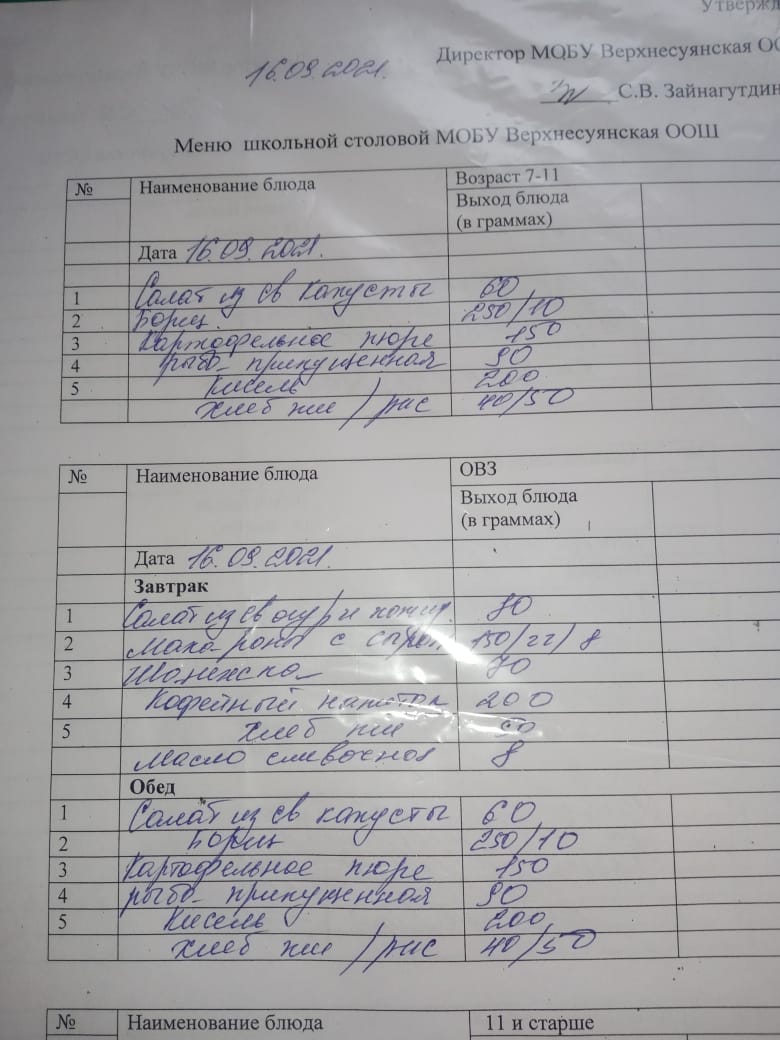 Утвержд
16.09.2021.
Директор МОБУ Верхнесуянская ОО
С.В. Зайнагутдин
Меню школьной столовой МОБУ Верхнесуянская ООШ
№ Наименование блюда Возраст 7-11
Выход блюда
(в граммах)
Дата 16.09.2021.
1 Салат из св капусты 60
2 Борщ 250/10
3 Картофельное пюре 150
4 рыба припущенная 90
5 Кисель 200
Хлеб пш / рж 40/50
№ Наименование блюда ОВЗ
Выход блюда
(в граммах)
Дата 16.09.2021.
Завтрак
1 Салат из св огур и
2 Макароны с сыром 150/22/8
3 70
4 Кофейный напиток 200
5 Хлеб пш 50
Масло сливочное 8
Обед
1 Салат из св капусты 60
2 Борщ 250/10
3 Картофельное пюре 150
4 рыба припущенная 90
5 Кисель 200
Хлеб пш / рж 40/50
№ Наименование блюда 11 и старше